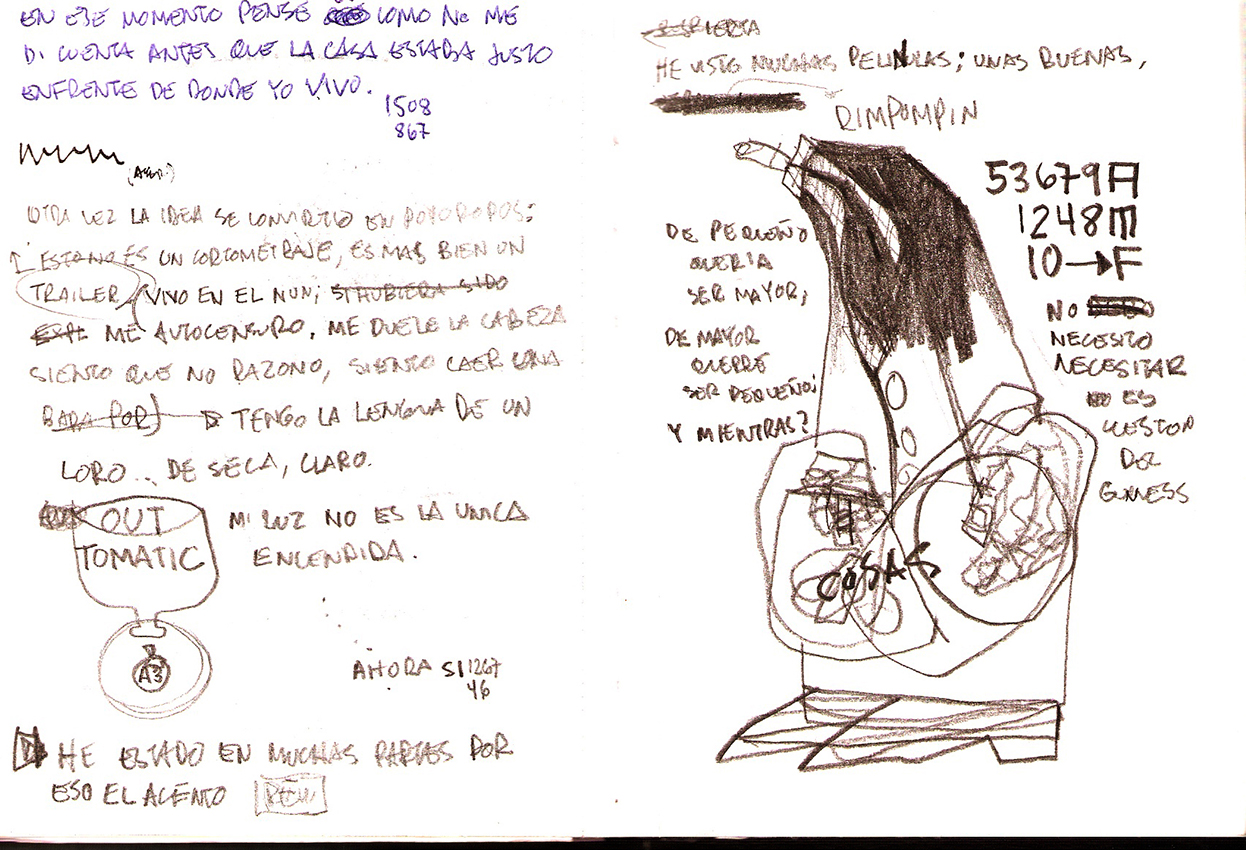 EN ESE MOMENTO PENSE COMO NO ME
DI CUENTA ANTES QUE LA CASA ESTABA JUSTO
ENFRENTE DE DONDE YO VIVO.
1508
867
OTRA VEZ LA IDEA SE CONVIRTIO EN POPOROPOS:
ESTO NO ES UN CORTOMETRAJE, ES MAS BIEN UN
TRAILER, VIVO EN EL NUN; SI HUBIERA SIDO
ME AUTOCENSURO, ME DUELE LA CABEZA
SIENTO QUE NO RAZONO, SIENTO CAER UNA
BABA POR TENGO LA LENGUA DE UN
LORO... DE SECA, CLARO.
OUT
TOMATIC
MI LUZ NO ES LA UNICA
ENCENDIDA.
A3
AHORA SI 1267
46
HE ESTADO EN MUCHAS PARTES POR
ESO EL ACENTO
HE VISTO MUCHAS PELICULAS; UNAS BUENAS,
RIMPOMPIN
53679A
1248M
10→F
DE PEQUEÑO
QUERIA
SER MAYOR,
DE MAYOR
QUERRE
SER PEQUEÑO;
Y MIENTRAS?
NO
NECESITO
NECESITAR
ES
CUESTION
DEL
GUINESS
COSAS